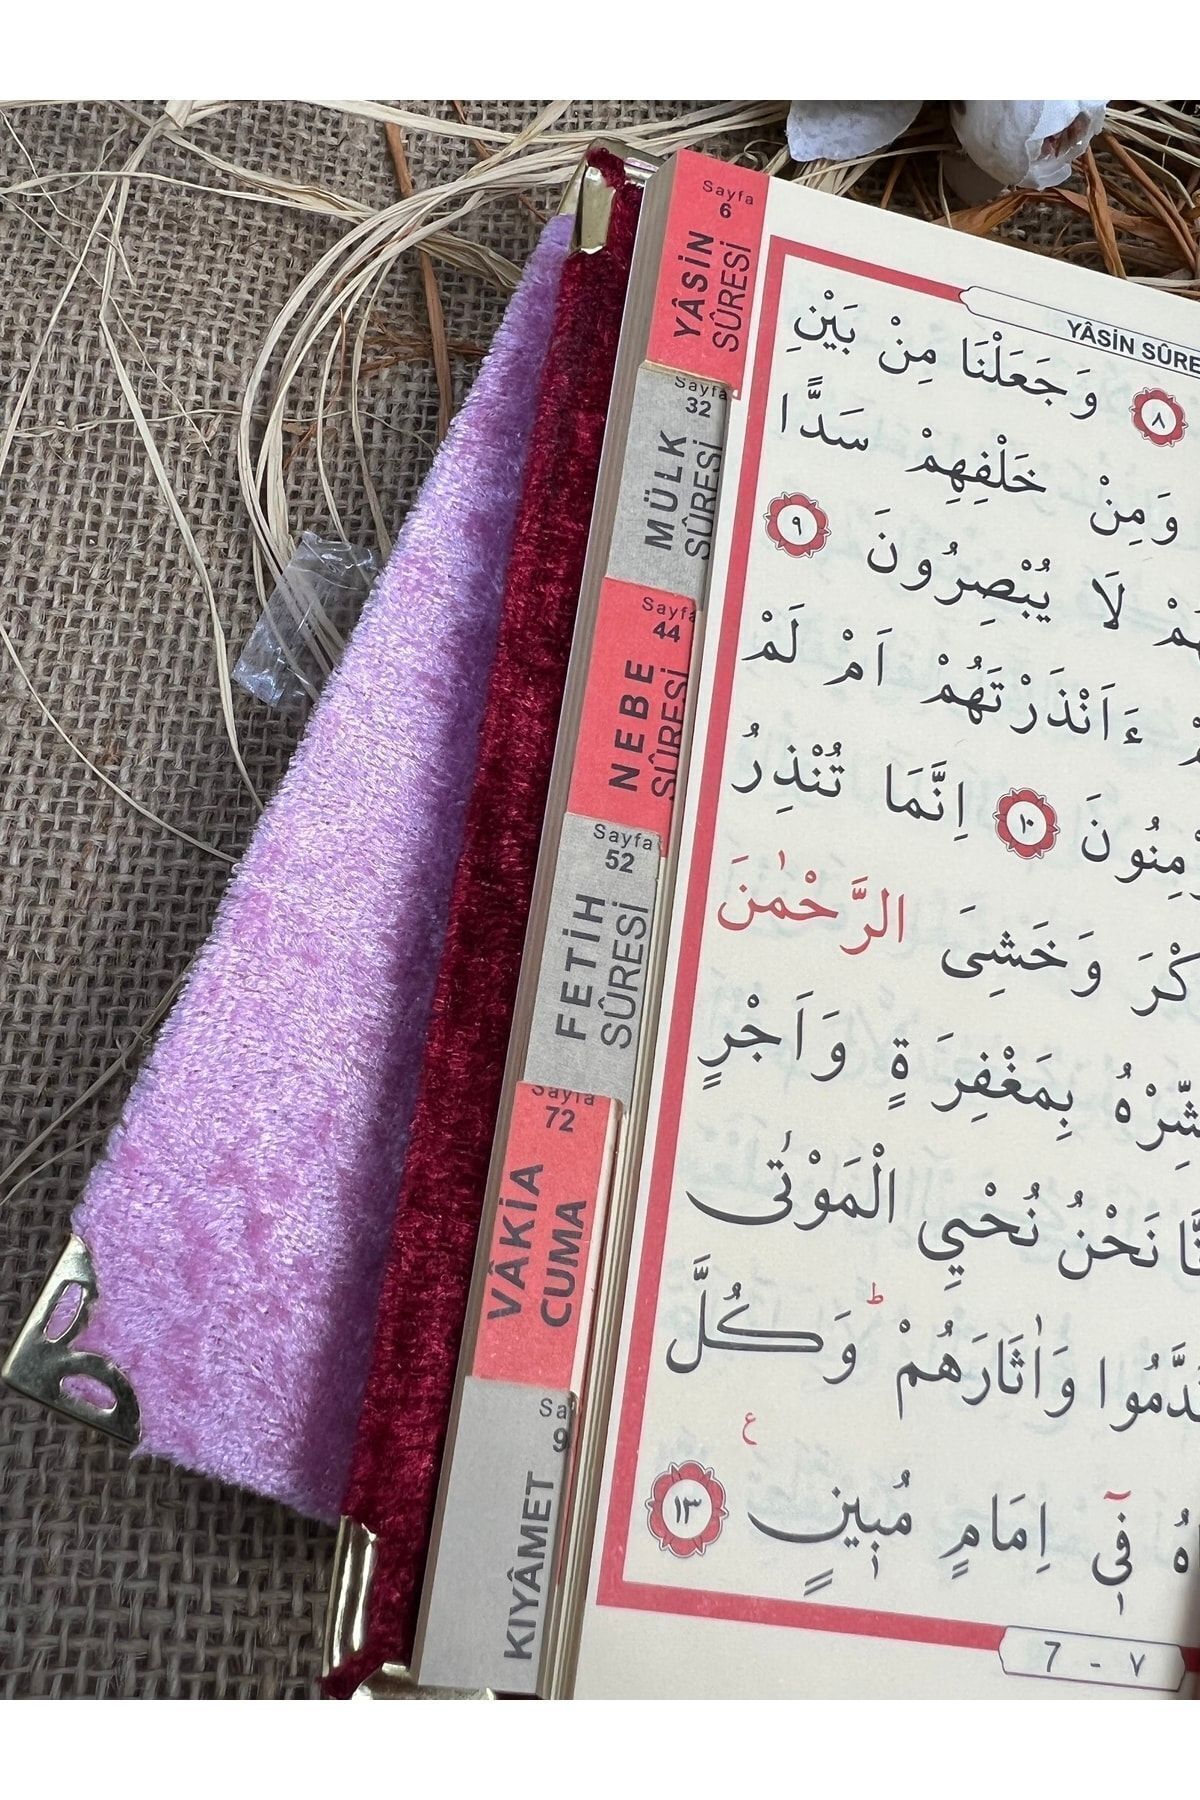 Sayfa
6
YÂSİN
SÛRESİ
Sayfa
32
MÜLK
SÛRESİ
Sayfa
44
NEBE
SÛRESİ
Sayfa
52
FETİH
SÛRESİ
Sayfa
72
VÂKİA
CUMA
KIYÂMET
YÂSİN SÛRE
٨ وَجَعَلْنَا مِنْ بَيْنِ
وَمِنْ خَلْفِهِمْ سَدًّا
لَا يُبْصِرُونَ ٩
ءَاَنْذَرْتَهُمْ اَمْ لَمْ
١٠ اِنَّمَا تُنْذِرُ
وَخَشِىَ الرَّحْمٰنَ
بِمَغْفِرَةٍ وَاَجْرٍ
نَحْنُ نُحْيِي الْمَوْتٰى
وَاٰثَارَهُمْ ط وَكُلَّ
فِٓى اِمَامٍ مُبٖينٍ ع ١٣
7 - ٧